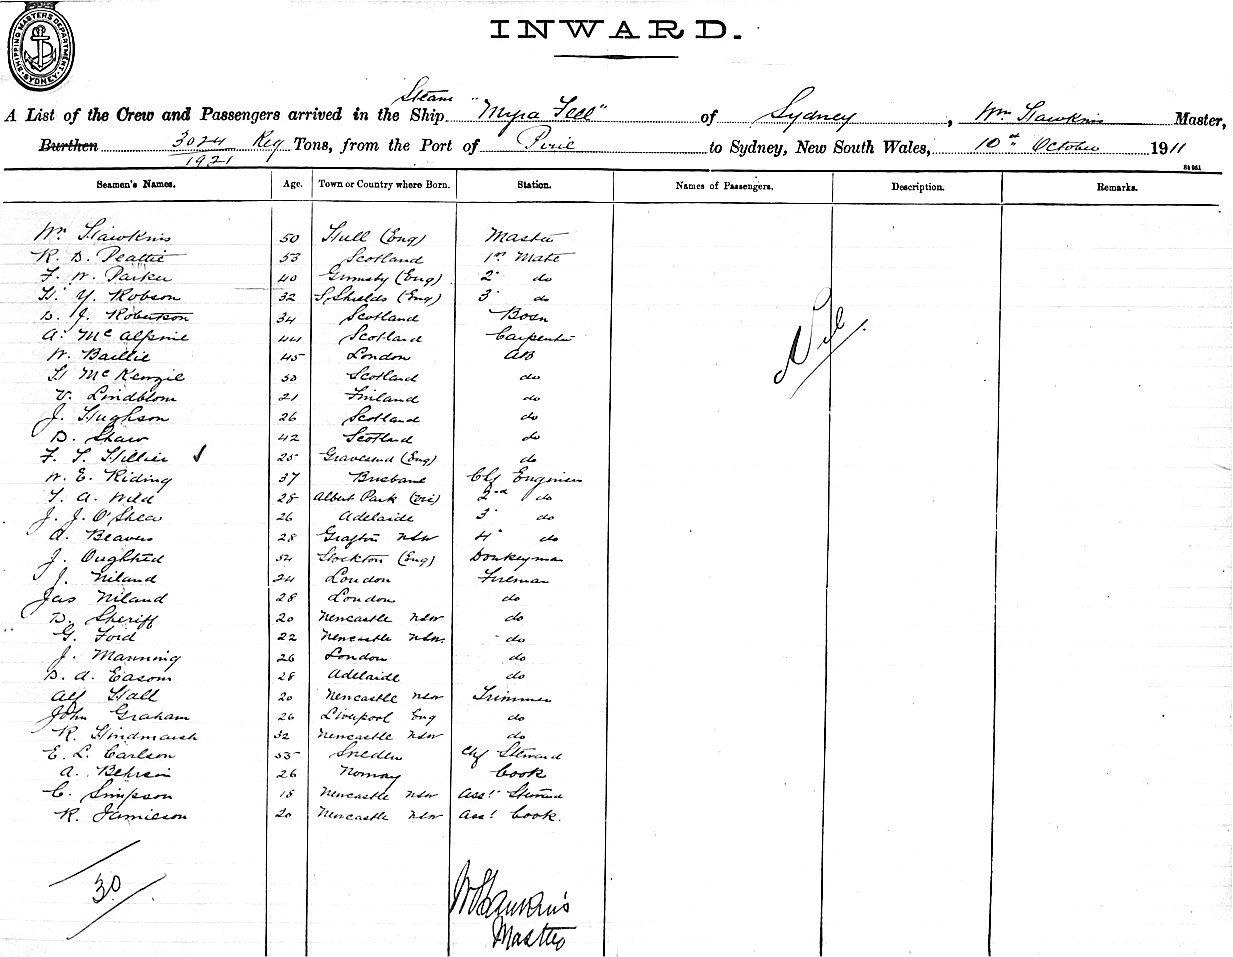 SHIPPING MASTERS DEPARTMENT SYDNEY
INWARD.
Steam
A List of the Crew and Passengers arrived in the Ship "Myra Fell" of Sydney, Wm Hawkins Master,
Burthen 3024 Reg Tons, from the Port of Pirie to Sydney, New South Wales, 10th October 1911
1921
Seamen's Names. Age. Town or Country where Born. Station. Names of Passengers. Description. Remarks.
Wm Hawkins 50 Hull (Eng) Master
R. D. Peattie 53 Scotland 1st Mate
F. W. Parker 40 Grimsby (Eng) 2" do
H. Y. Robson 32 S. Shields (Eng) 3" do
D. J. Robertson 34 Scotland Bosn
A. McAlpine 44 Scotland Carpenter
W. Baillie 45 London AB
H McKenzie 50 Scotland do
V. Lindblom 21 Finland do
J. Hughson 26 Scotland do
D. Shaw 42 Scotland do
F. T. Hillier 25 Gravesend (Eng) do
W. E. Riding 37 Brisbane Chf Engineer
T. A. Wild 28 Albert Park (Vic) 2nd do
J. J. O'Shea 26 Adelaide 3" do
A. Beavers 28 Grafton NSW 4" do
J. Oughted 54 Stockton (Eng) Donkeyman
J. Niland 24 London Fireman
Jas Niland 28 London do
D. Sheriff 20 Newcastle NSW do
G. Ford 22 Newcastle NSW. do
J. Manning 26 London do
D. A. Easom 28 Adelaide do
Alf Hall 20 Newcastle NSW Trimmer
John Graham 26 Liverpool Eng do
R. Hindmarsh 32 Newcastle NSW do
E. L. Carlson 35 Sweden Chf Steward
A. 26 Norway Cook
C. Simpson 18 Newcastle NSW Asst Steward
R. Jamieson 20 Newcastle NSW Asst Cook.
Nil
30
W Hawkins
Master